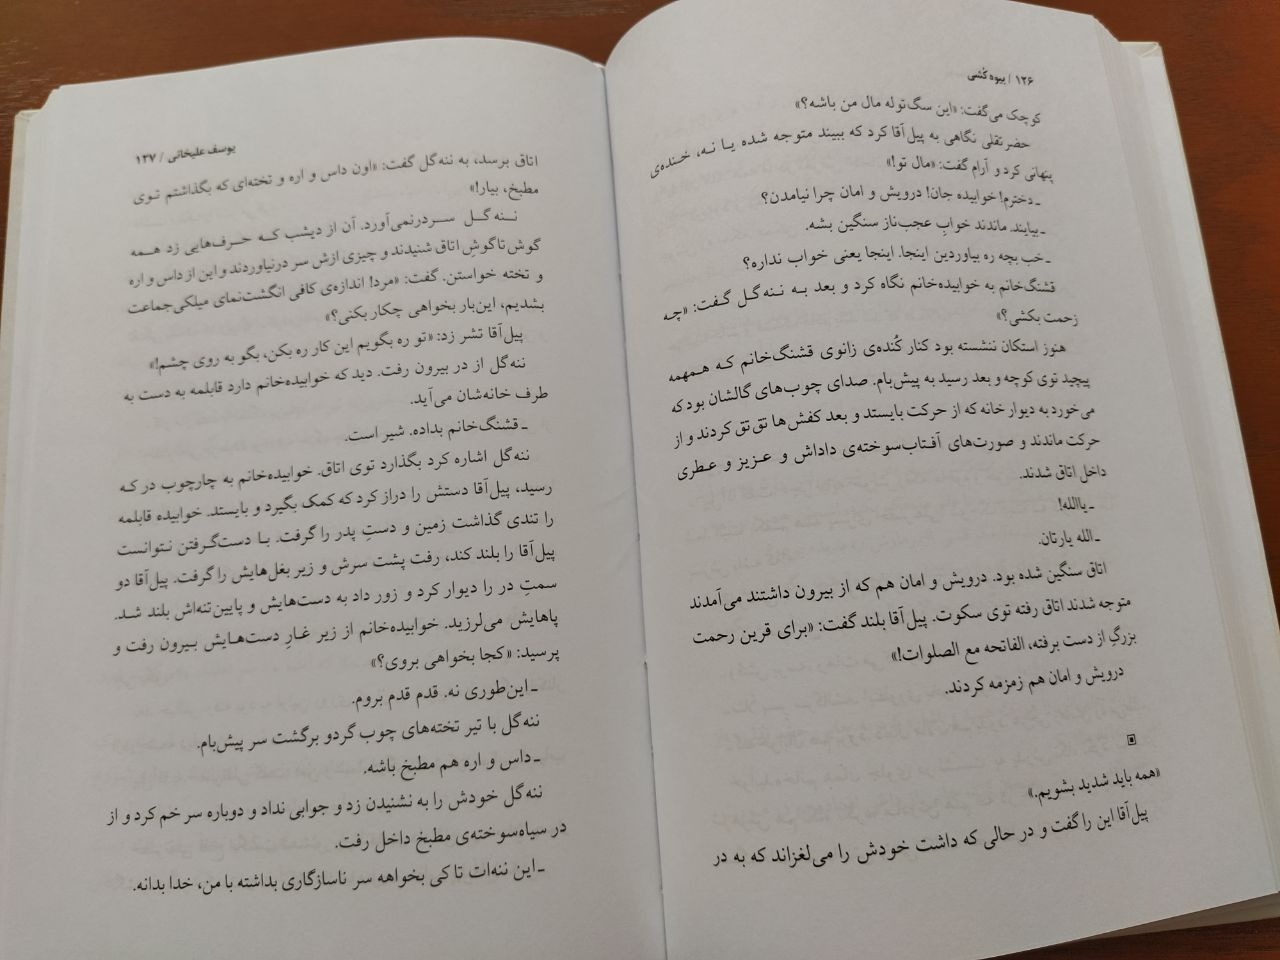 ۱۲۶ / بیوه‌کُشی
کوچک می‌گفت: «این سگ‌توله مال من باشه؟»
حضرتقلی نگاهی به پیل‌آقا کرد که ببیند متوجه شده یا نه، خنده‌ی
پنهانی کرد و آرام گفت: «مال تو!»
ـ دخترم! خوابیده جان! درویش و امان چرا نیامدن؟
ـ بیایند. ماندند خوابِ عجب‌ناز سنگین بشه.
ـ خب بچه ره بیاوردین اینجا. اینجا یعنی خواب نداره؟
قشنگ‌خانم به خوابیده‌خانم نگاه کرد و بعد به ننه‌گل گفت: «چه
زحمت بکشی؟»
هنوز استکان ننشسته بود کنار کُنده‌ی زانوی قشنگ‌خانم که همهمه
پیچید توی کوچه و بعد رسید به پیش‌بام. صدای چوب‌های گالشان بود که
می‌خورد به دیوار خانه که از حرکت بایستد و بعد کفش‌ها تق‌تق کردند و از
حرکت ماندند و صورت‌های آفتاب‌سوخته‌ی داداش و عزیز و عطری
داخل اتاق شدند.
ـ یاالله!
ـ الله یارتان.
اتاق سنگین شده بود. درویش و امان هم که از بیرون داشتند می‌آمدند
متوجه شدند اتاق رفته توی سکوت. پیل‌آقا بلند گفت: «برای قرین رحمت
بزرگِ از دست برفته، الفاتحه مع الصلوات!»
درویش و امان هم زمزمه کردند.
«همه باید شدید بشویم.»
پیل‌آقا این را گفت و در حالی که داشت خودش را می‌لغزاند که به در
یوسف علیخانی / ۱۲۷
اتاق برسد، به ننه‌گل گفت: «اون داس و اره و تخته‌ای که بگذاشتم توی
مطبخ، بیار!»
ننه‌گل سردرنمی‌آورد. آن از دیشب که حرف‌هایی زد همه
گوش تاگوشِ اتاق شنیدند و چیزی ازش سر درنیاوردند و این از داس و اره
و تخته خواستن. گفت: «مرد! اندازه‌ی کافی انگشت‌نمای میلکی‌جماعت
بشدیم، این‌بار بخواهی چکار بکنی؟»
پیل‌آقا تشر زد: «تو ره بگویم این کار ره بکن، بگو به روی چشم!»
ننه‌گل از در بیرون رفت. دید که خوابیده‌خانم دارد قابلمه به دست به
طرف خانه‌شان می‌آید.
ـ قشنگ‌خانم بداده. شیر است.
ننه‌گل اشاره کرد بگذارد توی اتاق. خوابیده‌خانم به چارچوب در که
رسید، پیل‌آقا دستش را دراز کرد که کمک بگیرد و بایستد. خوابیده قابلمه
را تندی گذاشت زمین و دستِ پدر را گرفت. با دست‌گرفتن نتوانست
پیل‌آقا را بلند کند، رفت پشت سرش و زیر بغل‌هایش را گرفت. پیل‌آقا دو
سمتِ در را دیوار کرد و زور داد به دست‌هایش و پایین‌تنه‌اش بلند شد.
پاهایش می‌لرزید. خوابیده‌خانم از زیر غارِ دست‌هایش بیرون رفت و
پرسید: «کجا بخواهی بروی؟»
ـ این‌طوری نه. قدم قدم بروم.
ننه‌گل با تیر تخته‌های چوب گردو برگشت سر پیش‌بام.
ـ داس و اره هم مطبخ باشه.
ننه‌گل خودش را به نشنیدن زد و جوابی نداد و دوباره سر خم کرد و از
در سیاه‌سوخته‌ی مطبخ داخل رفت.
ـ این ننه‌ات تا کی بخواهه سر ناسازگاری بداشته با من، خدا بدانه.